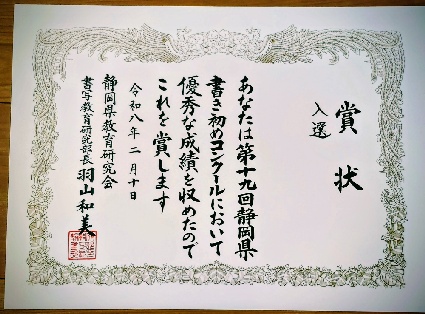 賞状
入選
あなたは第十九回静岡県
書き初めコンクールにおいて
優秀な成績を収めたので
これを賞します
令和八年二月十日
静岡県教育研究会
書写教育研究部長 羽山和美